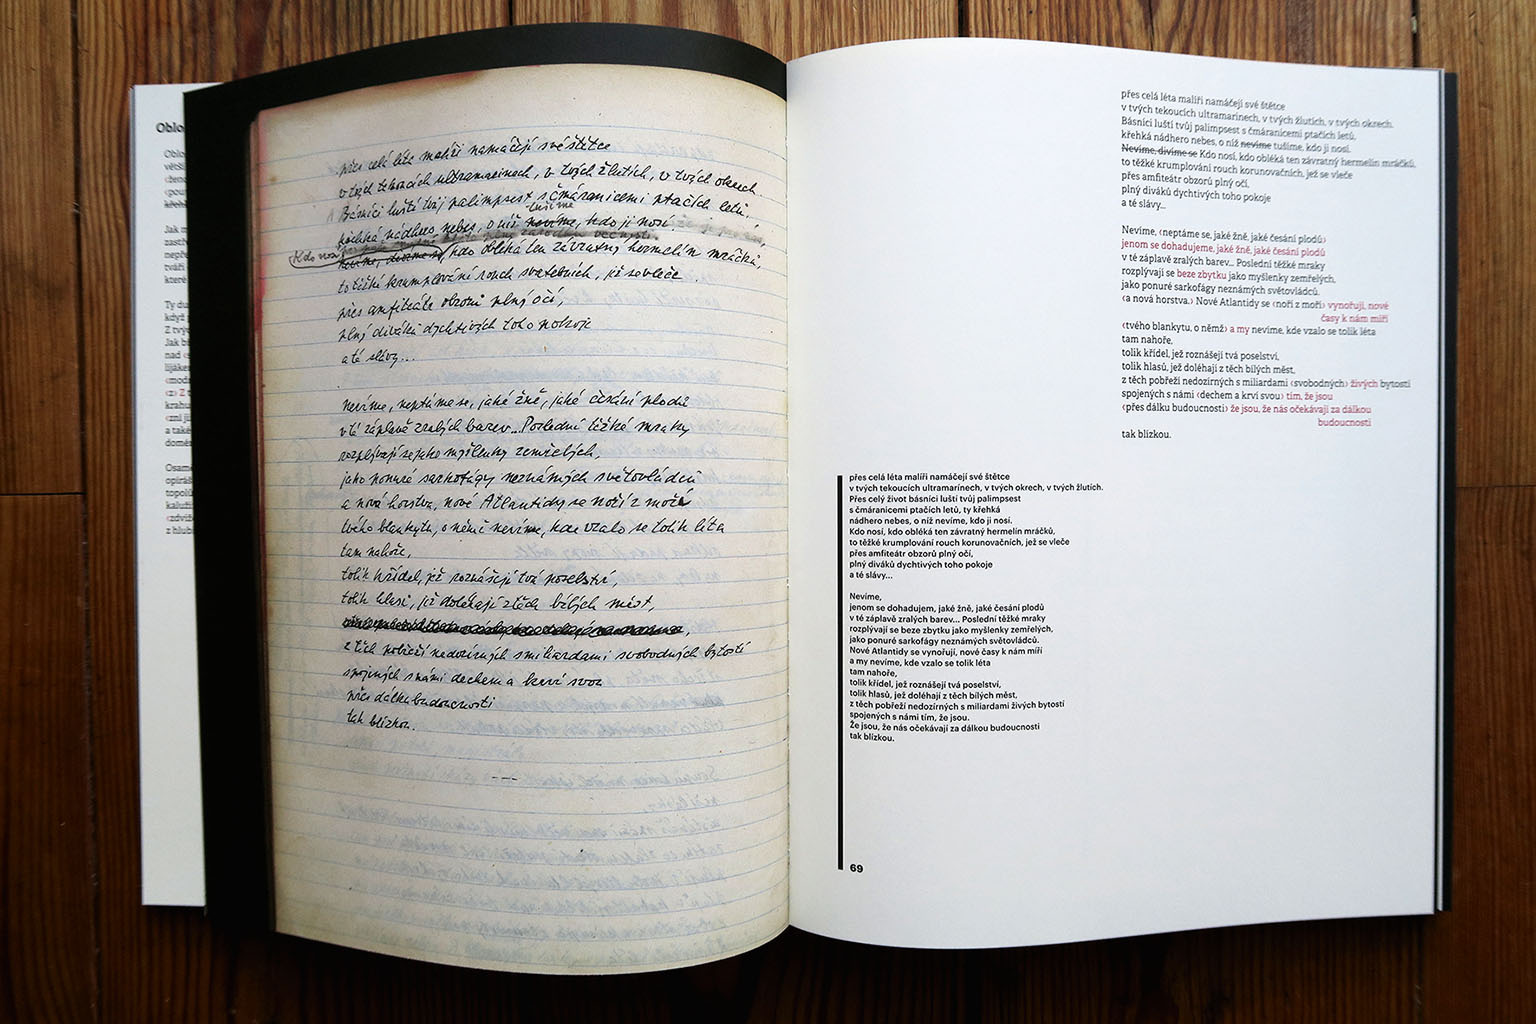 Oblo
Oblo
větš
‹ženo
‹pour
křeh
Jak m
zastř
nepře
tváří
které
Ty du
když
Z tvý
Jak bě
nad ‹s
lijáke
‹modr
‹z› Z t
krahu
‹zní ji
a také
domé
Osam
opírá
topolů
kaluži
‹zdviž
z hlub
přes celá léta malíři namáčejí své štětce
v tvých tekoucích ultramarinech, v tvých žlutích, v tvých okrech.
Básníci luští tvůj palimpsest s čmáranicemi ptačích letů,
tušíme
křehká nádhero nebes, o níž nevíme, kdo ji nosí.
Kdo nosí
nevíme, divíme se, kdo obléká ten závratný hermelín mráčků,
to těžké krumplování rouch svatebních, jež se vleče
přes amfiteátr obzorů plný očí,
plný diváků dychtivých toho pokoje
a té slávy...
nevíme, neptáme se, jaké žně, jaké česání plodů
v té záplavě zralých barev... Poslední těžké mraky
rozplývají se jako myšlenky zemřelých,
jako ponuré sarkofágy neznámých světovládců
a nová horstva, nové Atlantidy se noří z moře
tvého blankytu, o němž nevíme, kde vzalo se tolik léta
tam nahoře,
tolik křídel, jež roznášejí tvá poselství,
tolik hlasů, jež doléhají z těch bílých měst,
z těch pobřeží nedozírných s miliardami svobodných bytostí
spojených s námi dechem a krví svou
přes dálku budoucnosti
tak blízkou.
přes celá léta malíři namáčejí své štětce
v tvých tekoucích ultramarinech, v tvých žlutích, v tvých okrech.
Básníci luští tvůj palimpsest s čmáranicemi ptačích letů,
křehká nádhero nebes, o níž nevíme tušíme, kdo ji nosí.
Nevíme, divíme se Kdo nosí, kdo obléká ten závratný hermelín mráčků,
to těžké krumplování rouch korunovačních, jež se vleče
přes amfiteátr obzorů plný očí,
plný diváků dychtivých toho pokoje
a té slávy...
Nevíme, ‹neptáme se, jaké žně, jaké česání plodů›
jenom se dohadujeme, jaké žně, jaké česání plodů
v té záplavě zralých barev... Poslední těžké mraky
rozplývají se beze zbytku jako myšlenky zemřelých,
jako ponuré sarkofágy neznámých světovládců.
‹a nová horstva,› Nové Atlantidy se ‹noří z moří› vynořují, nové
časy k nám míří
‹tvého blankytu, o němž› a my nevíme, kde vzalo se tolik léta
tam nahoře,
tolik křídel, jež roznášejí tvá poselství,
tolik hlasů, jež doléhají z těch bílých měst,
z těch pobřeží nedozírných s miliardami ‹svobodných› živých bytostí
spojených s námi ‹dechem a krví svou› tím, že jsou
‹přes dálku budoucnosti› že jsou, že nás očekávají za dálkou
budoucnosti
tak blízkou.
přes celá léta malíři namáčejí své štětce
v tvých tekoucích ultramarínech, v tvých okrech, v tvých žlutích.
Přes celý život básníci luští tvůj palimpsest
s čmáranicemi ptačích letů, ty křehká
nádhero nebes, o níž nevíme, kdo ji nosí.
Kdo nosí, kdo obléká ten závratný hermelín mráčků,
to těžké krumplování rouch korunovačních, jež se vleče
přes amfiteátr obzorů plný očí,
plný diváků dychtivých toho pokoje
a té slávy...
Nevíme,
jenom se dohadujem, jaké žně, jaké česání plodů
v té záplavě zralých barev... Poslední těžké mraky
rozplývají se beze zbytku jako myšlenky zemřelých,
jako ponuré sarkofágy neznámých světovládců.
Nové Atlantidy se vynořují, nové časy k nám míří
a my nevíme, kde vzalo se tolik léta
tam nahoře,
tolik křídel, jež roznášejí tvá poselství,
tolik hlasů, jež doléhají z těch bílých měst,
z těch pobřeží nedozírných s miliardami živých bytostí
spojených s námi tím, že jsou.
Že jsou, že nás očekávají za dálkou budoucnosti
tak blízkou.
69